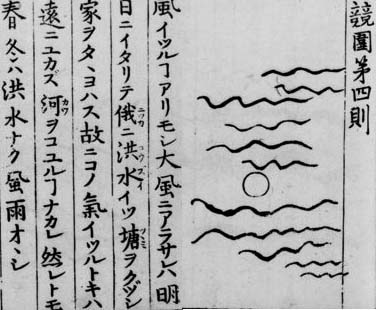 競圍第四則
風イツルヿアリモシ大風ニアラサレハ明
日ニイタリテ俄ニ洪水イツ塘ヲクヅシ
家ヲタヽヨハス故ニコノ氣イツルトキハ
遠ニユカズ河ヲコユルヿナカレ然レトモ
春冬ハ洪水ナク風雨オヽシ